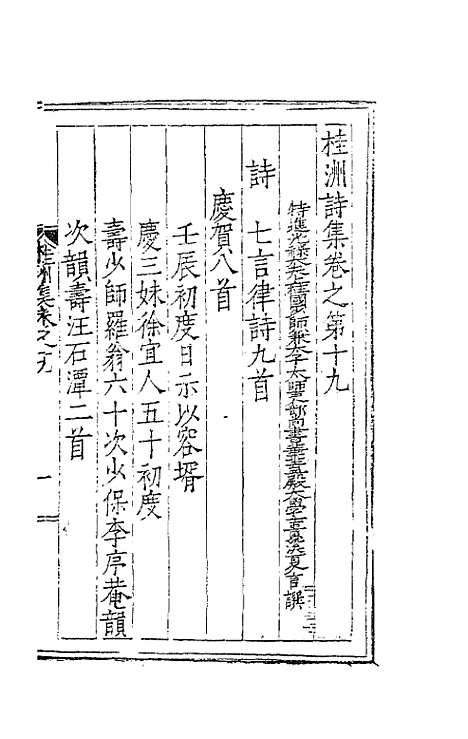 桂洲詩集卷之第十九
特進光祿大夫上柱國少師兼太子太師吏部尚書華蓋殿大學士貴溪夏言譔
詩　七言律詩九首
慶賀八首
壬辰初度日示以容壻
慶三妹徐宜人五十初度
壽少師羅翁六十次少保李序菴韻
次韻壽汪石潭二首
桂洲集卷之九
一